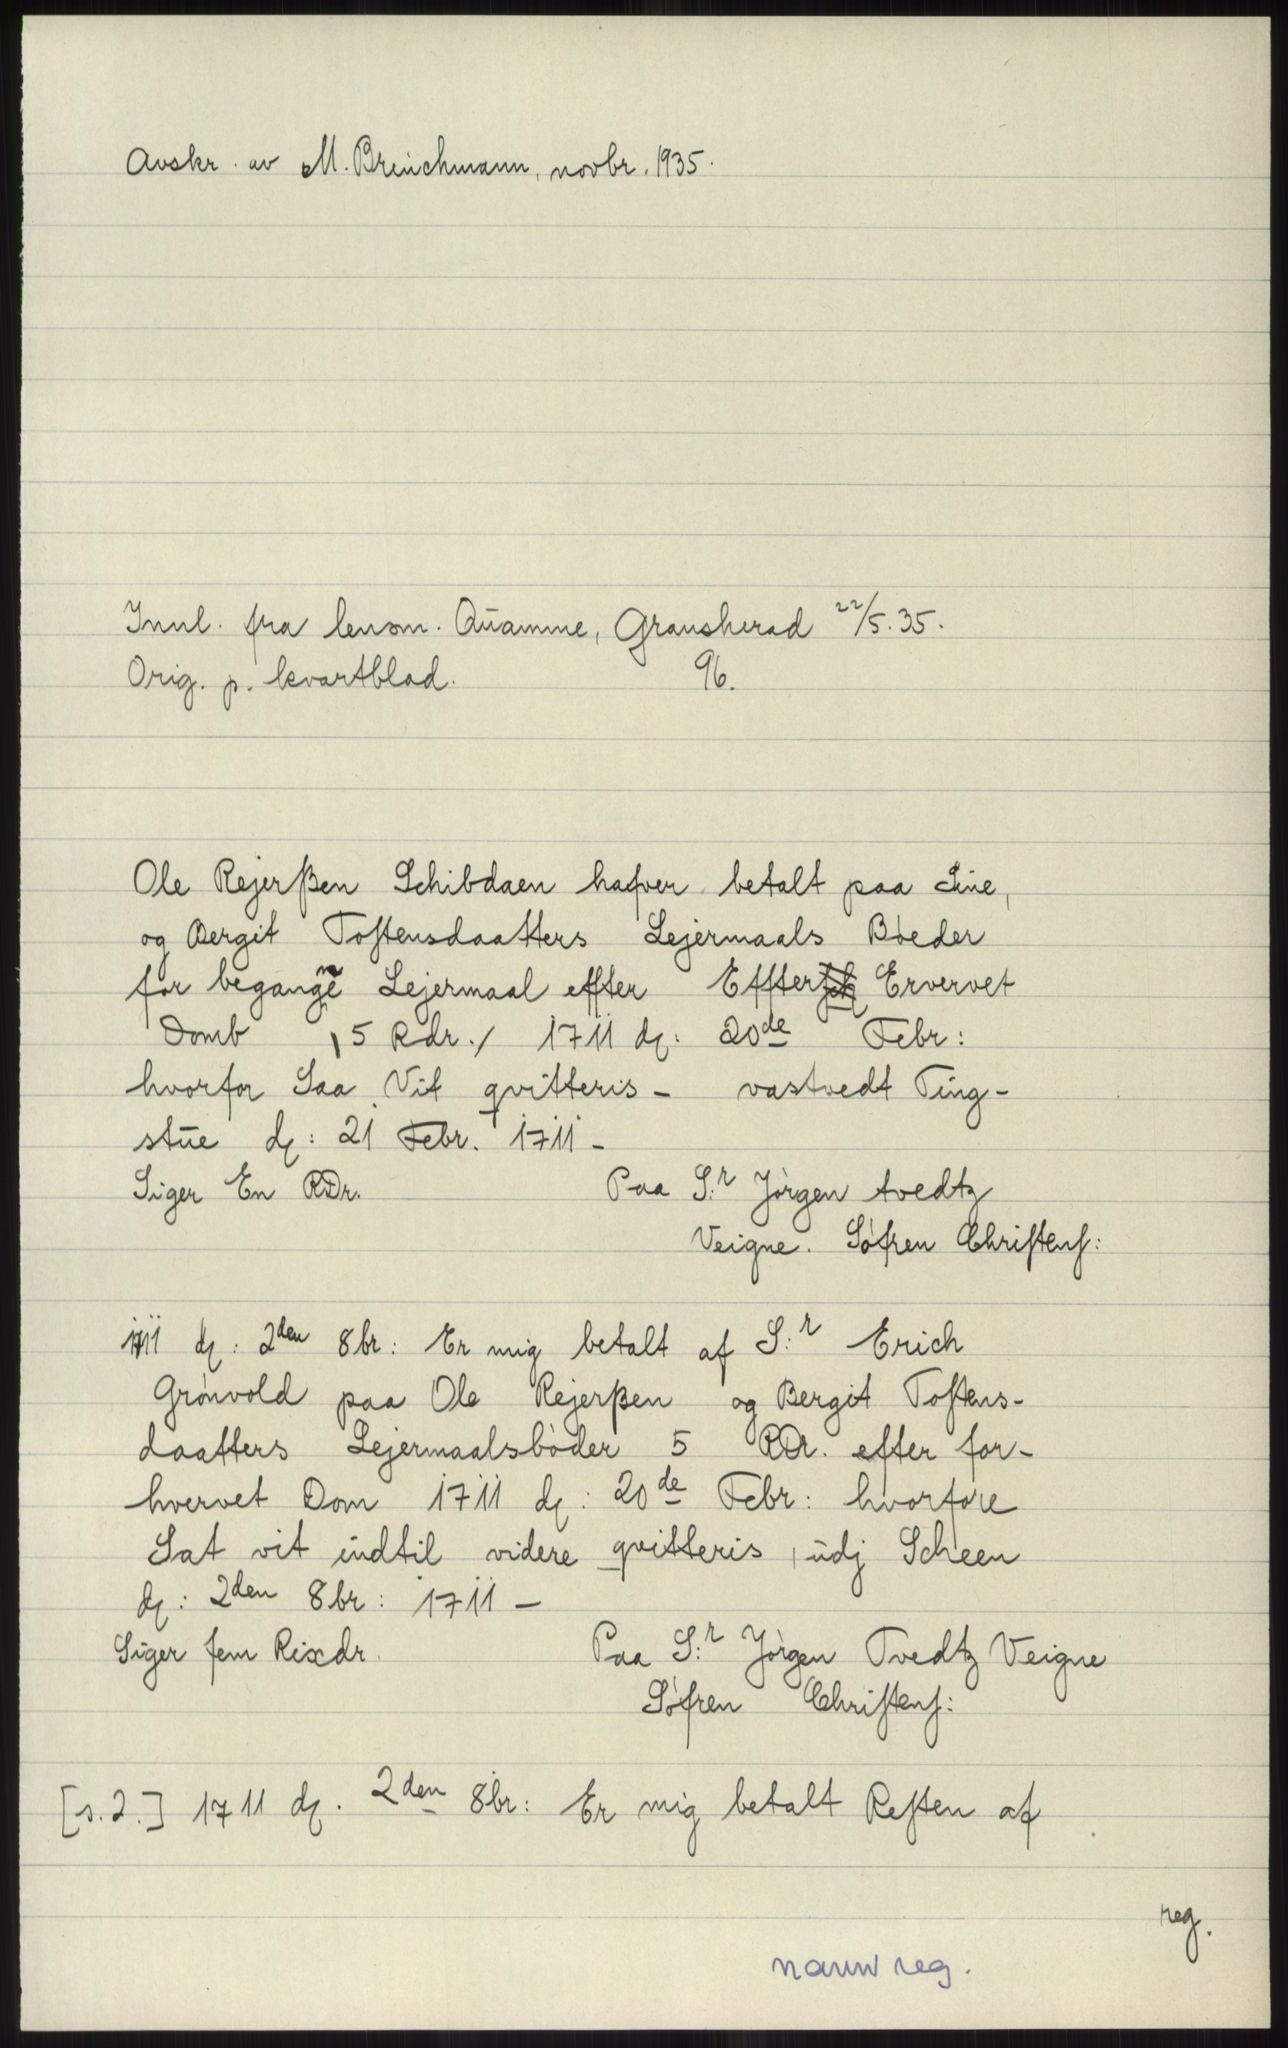 Avskr. av M. Breinchmann, novbr. 1935.
Innl. fra lensm. Quamme, Gransherad 22/5.35.
Orig. p. kvartblad. 96.
Ole Rejerßen Schibdaen hafver betalt paa Sine,
og Bergit Toftensdaatters Lejermaals Bøeder
for begangne Lejermaal efter Effter Ervervet
Domb 5 Rdr./ 1711 d: 20de Febr:
hvorfor Saa Vit qvitteris – vastvedt Ting-
stue d: 21 Febr. 1711 –
Siger En RDr. Paa S:r Jörgen tvedtz
Veigne. Söfren Christens:
1711 d: 2den 8br: Er mig betalt af S:r Erich
Grönvold paa Ole Rejerßen og Bergit Toftens-
daatters Lejermaalsböder 5 RDr. efter for-
hvervet Dom 1711 d: 20de Febr: hvorfore
Sat vit indtil videre qvitteris, udj Scheen
d: 2den 8br: 1711 –
Siger fem Rixdr. Paa S:r Jörgen Tvedtz Veigne
Söfren Christens:
[s. 2.] 1711 d. 2den 8br: Er mig betalt Resten af
reg.
navn reg.